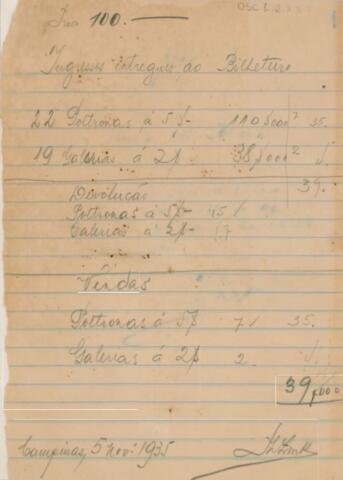 100.—
Ingressos entregues ao Bilheteiro
22 Poltronas á 5$- 110$000 35.
19 Galerias á 2$ 38$000
39.
Devolução
Poltronas á 5$- 15/
Galerias á 2$- 17
Vendas
Poltronas á 5$ 7/ 35.
Galerias á 2$ 2.
39$000
Campinas, 5 nov: 1935